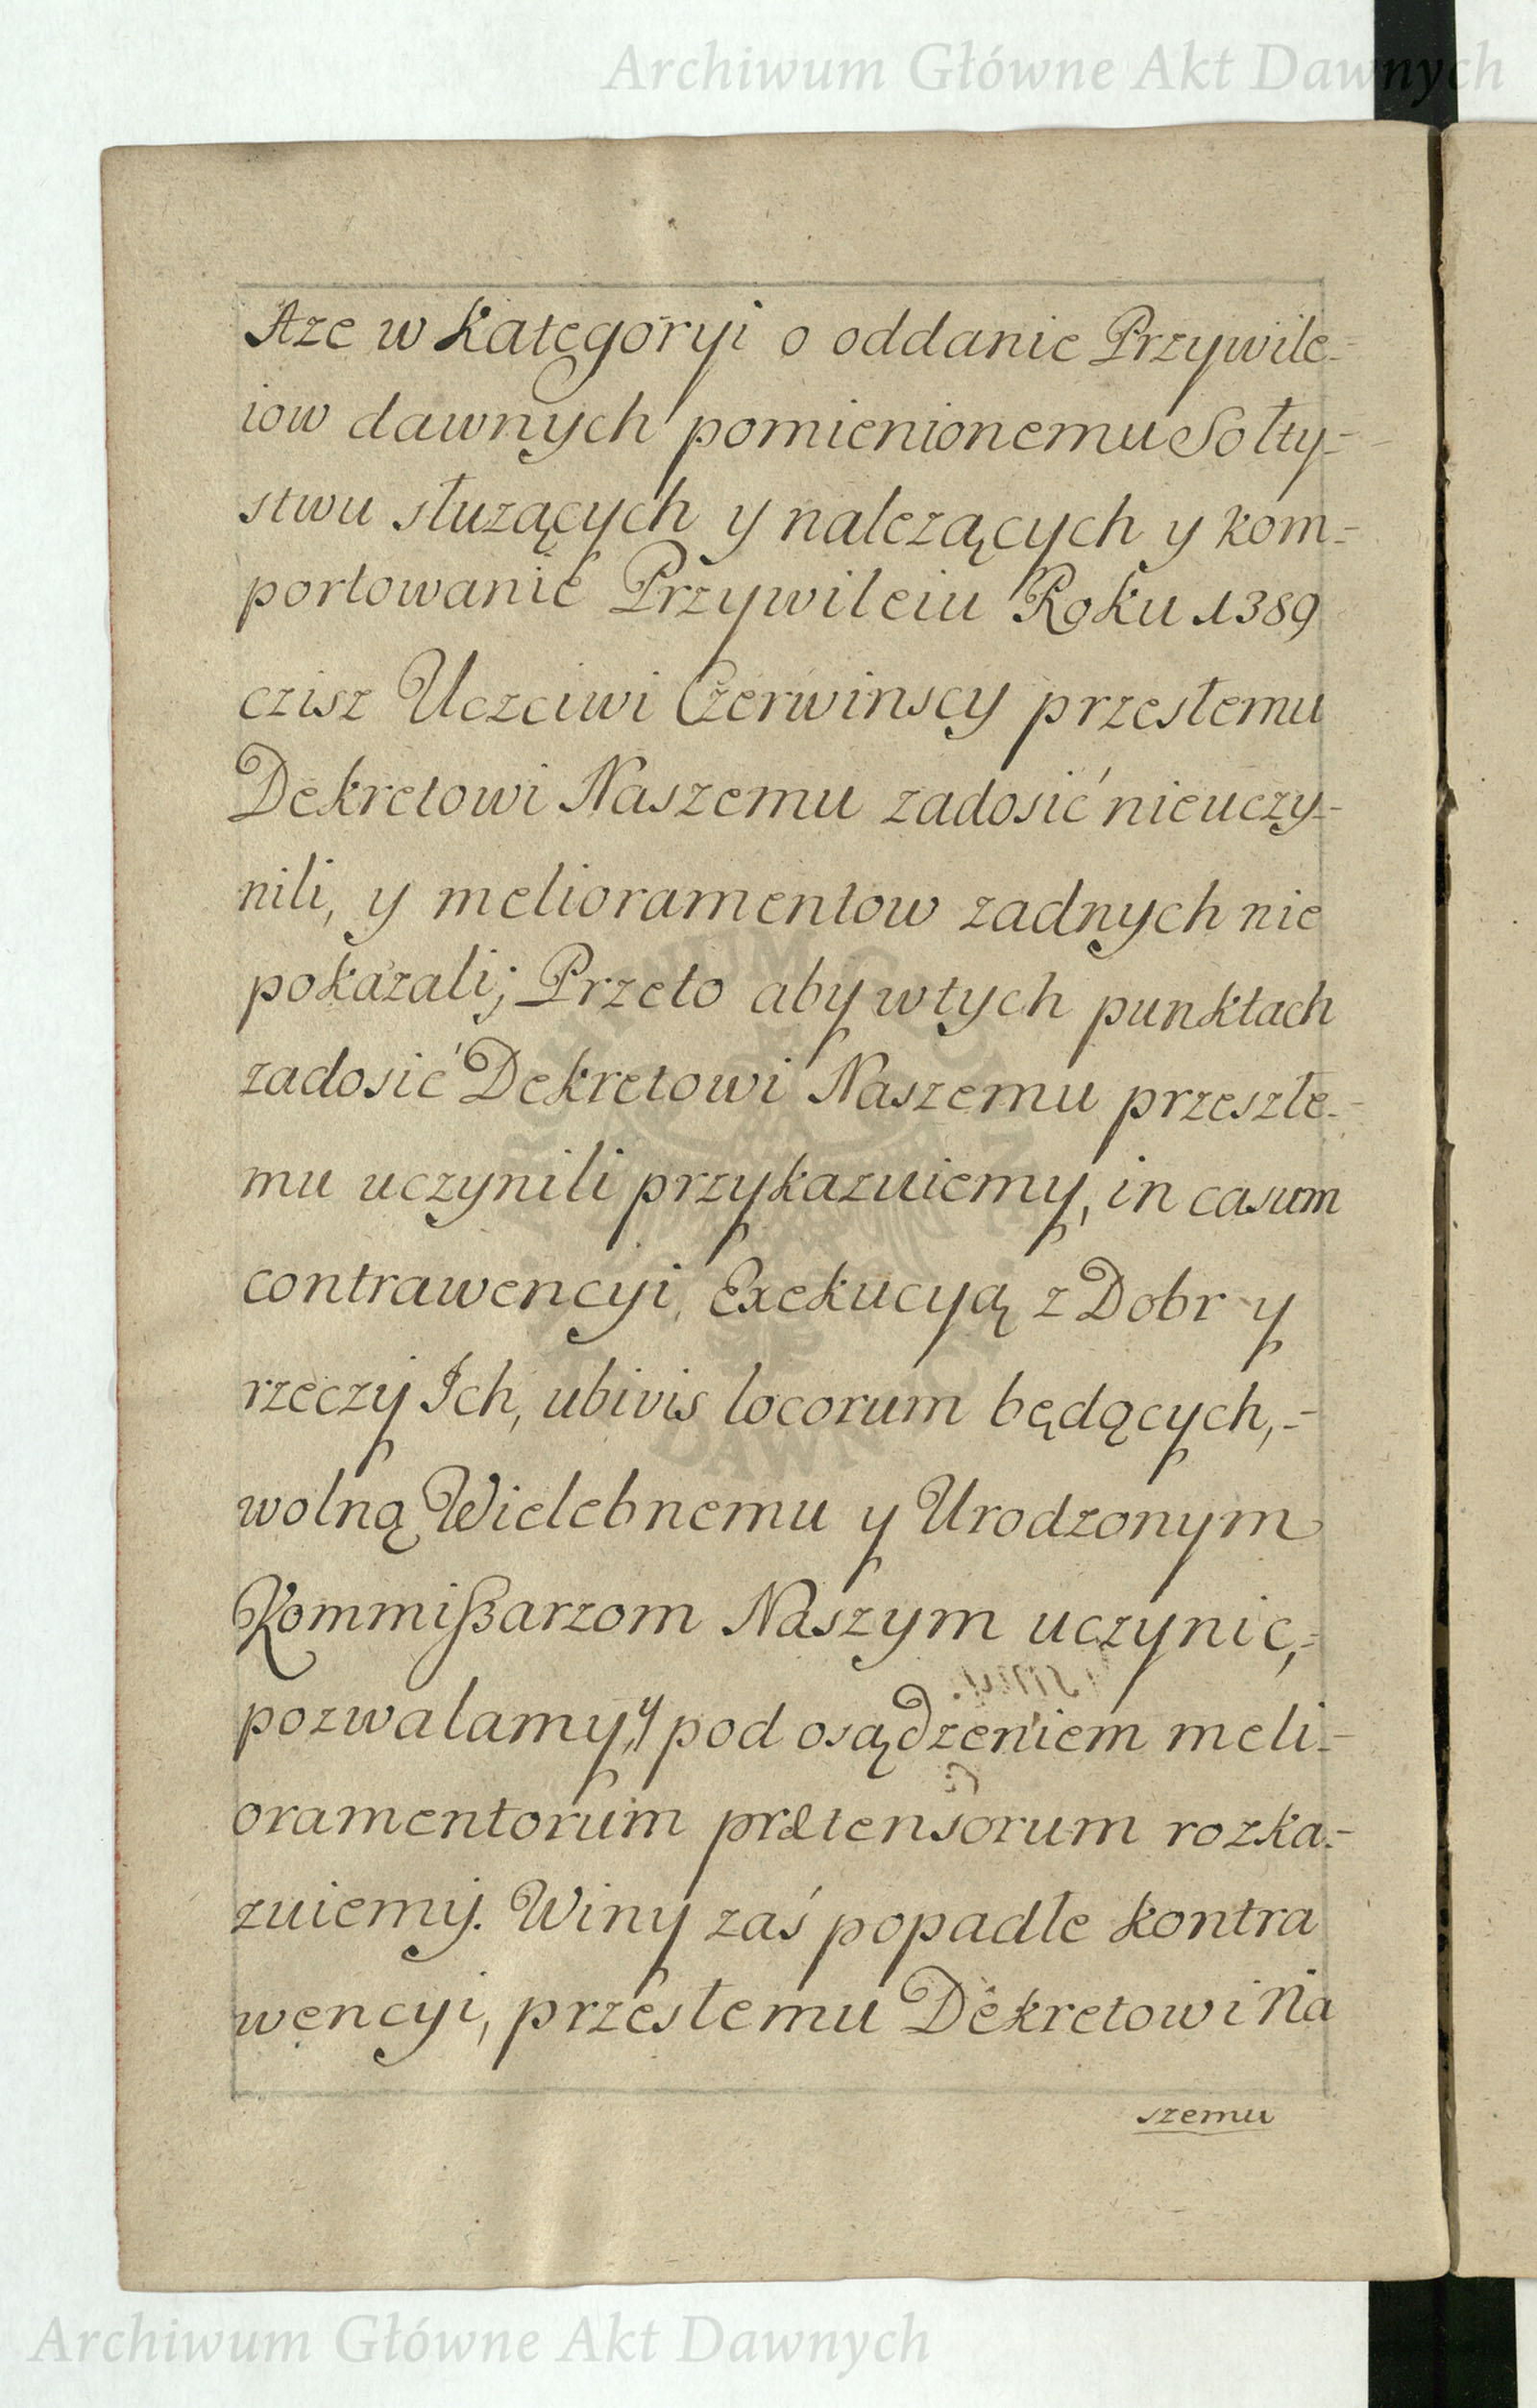 Archiwum Główne Akt Dawnych
Aze w kategoryi o oddanie Przywile=
iow dawnych pomienionemu Sołty=
stwu słuzących y nalezących y kom=
portowanie Przywileiu Roku 1389
czisz Uczciwi Czerwinscy przesłemu
Dekretowi Naszemu zadosić nieuczy=
nili, y melioramentow zadnych nie
pokazali; Przeto aby wtych punktach
zadosić Dekretowi Naszemu przeszłe=
mu uczynili przykazuiemy, in casum
contrawencyi, Exekucyą z Dobr y
rzeczy Ich, ubivis locorum będących,=
wolną Wielebnemu y Urodzonym
Kommißarzom Naszym uczynic,=
pozwalamy, y pod osądzeniem meli=
oramentorum prætensorum rozka=
zuiemy. Winy zaś popadłe kontra
wencyi, przesłemu Dekretowi Na
szemu
Archiwum Główne Akt Dawnych